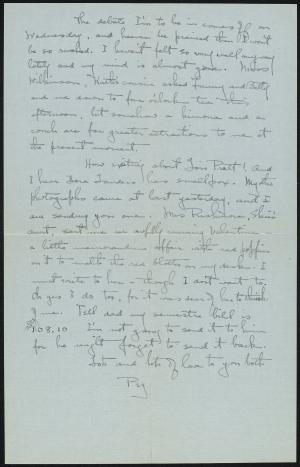 The debate I'm to be in comes off on
Wednesday, and heaven be praised then I won't
be so rushed. I haven't felt so very well
lately and my mind is almost gone. Miss
Wilkinson, cousin asked Fanny and Betty
and me down to for tea this
afternoon, but somehow a kimona and a
couch are far greater attractions to me at
the present moment.
How exciting about Lois Pratt! And
I hear Dora Sanders has smallpox. My
photographs came at last yesterday, and I
am sending you one. Mrs
aunt, sent me an awfully cunning Valentine -
a little memorandum affair with red poppies
on it to match the red blotter on my desk. I
must write to her - though I don't want to.
Oh yes I do too, for it was sweet of her to think
of me. Tell dad my semester bill is
$108.10 I'm not going to send it to him
for he might forget to send it back.
Lots and lots of love to you both
Peg